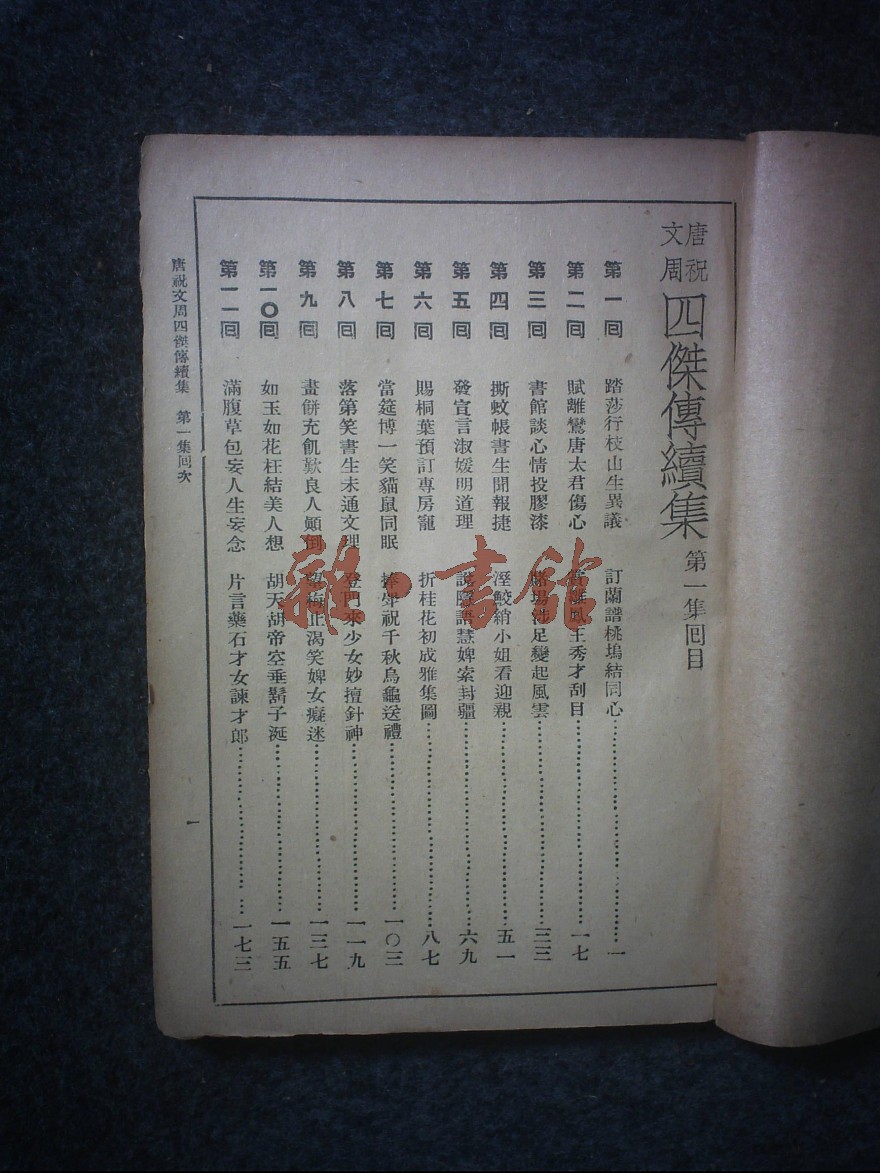 唐祝
文周
四傑傳續集 第一集回目
第一回 踏莎行枝山生異議 訂蘭譜桃塢結同心 一
第二回 賦離鸞唐太君傷心 鳳王秀才刮目 一七
第三回 書館談心情投膠漆 賭場涉足變起風雲 三三
第四回 撕蚊帳書生聞報捷 溼鮫綃小姐看迎親 五一
第五回 發宣言淑媛明道理 說隱語慧婢索封疆 六九
第六回 賜桐葉預訂專房寵 折桂花初成雅集圖 八七
第七回 當筵博一笑貓鼠同眠 捧觴祝千秋烏龜送禮 一〇三
第八回 落第笑書生未通文理 登門來少女妙擅針神 一一九
第九回 畫餅充飢歎良人顛倒 望梅止渴笑婢女癡迷 一三七
第一〇回 如玉如花枉結美人想 胡天胡帝空垂鬍子涎 一五五
第一一回 滿腹草包妄人生妄念 片言藥石才女諫才郎 一七三
唐祝文周四傑傳續集 第一集回次
一
雜·書館